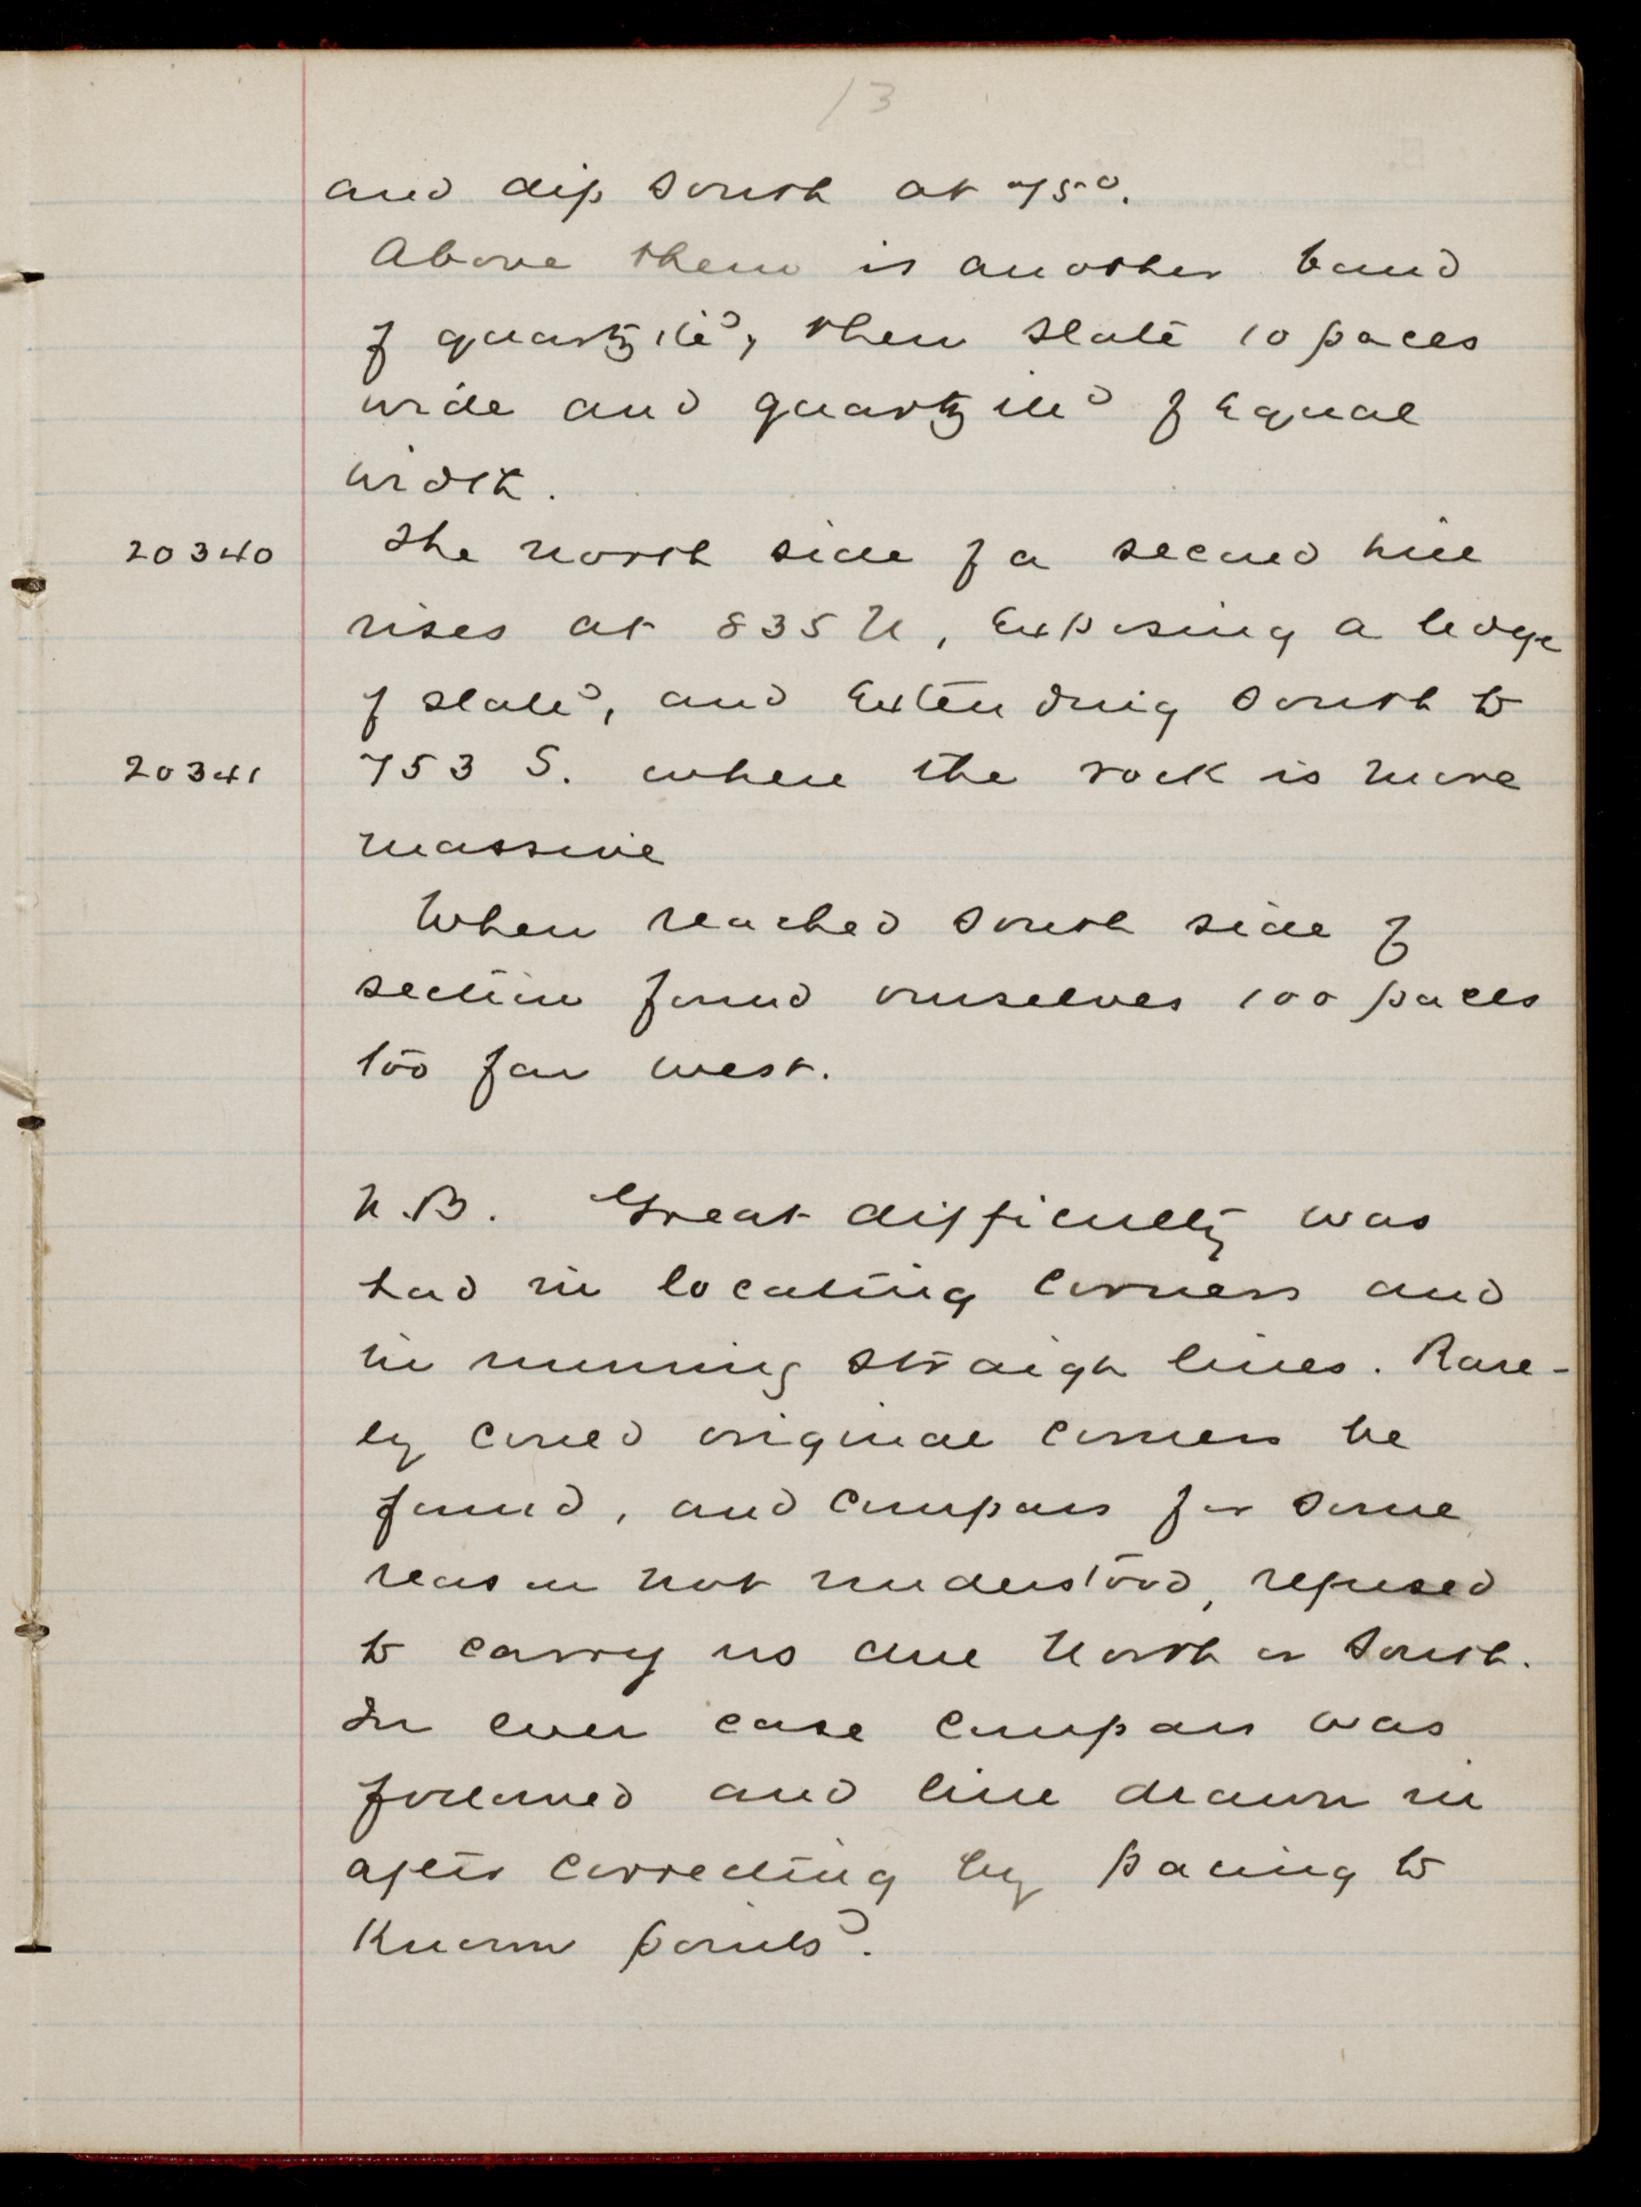 13
and dip south at 75°.
Above them is another band
of quartzite, then slate 10 paces
wide and quartzite of equal
width.
20340 The north side of a second hill
rises at 835 N, exposing a ledge
of slate, and extending south to
20341 753 S. where the rock is more
massive
When reached south side of
section found ourselves 100 paces
too far west.
N.B. Great difficulty was
had in locating corners and
in running straigh lines. Rare-
ly could original corners be
found, and compass for some
reason not understood, refused
to carry us due North or South.
In ever case compass was
followed and line drawn in
after correcting by pacing to
known points.